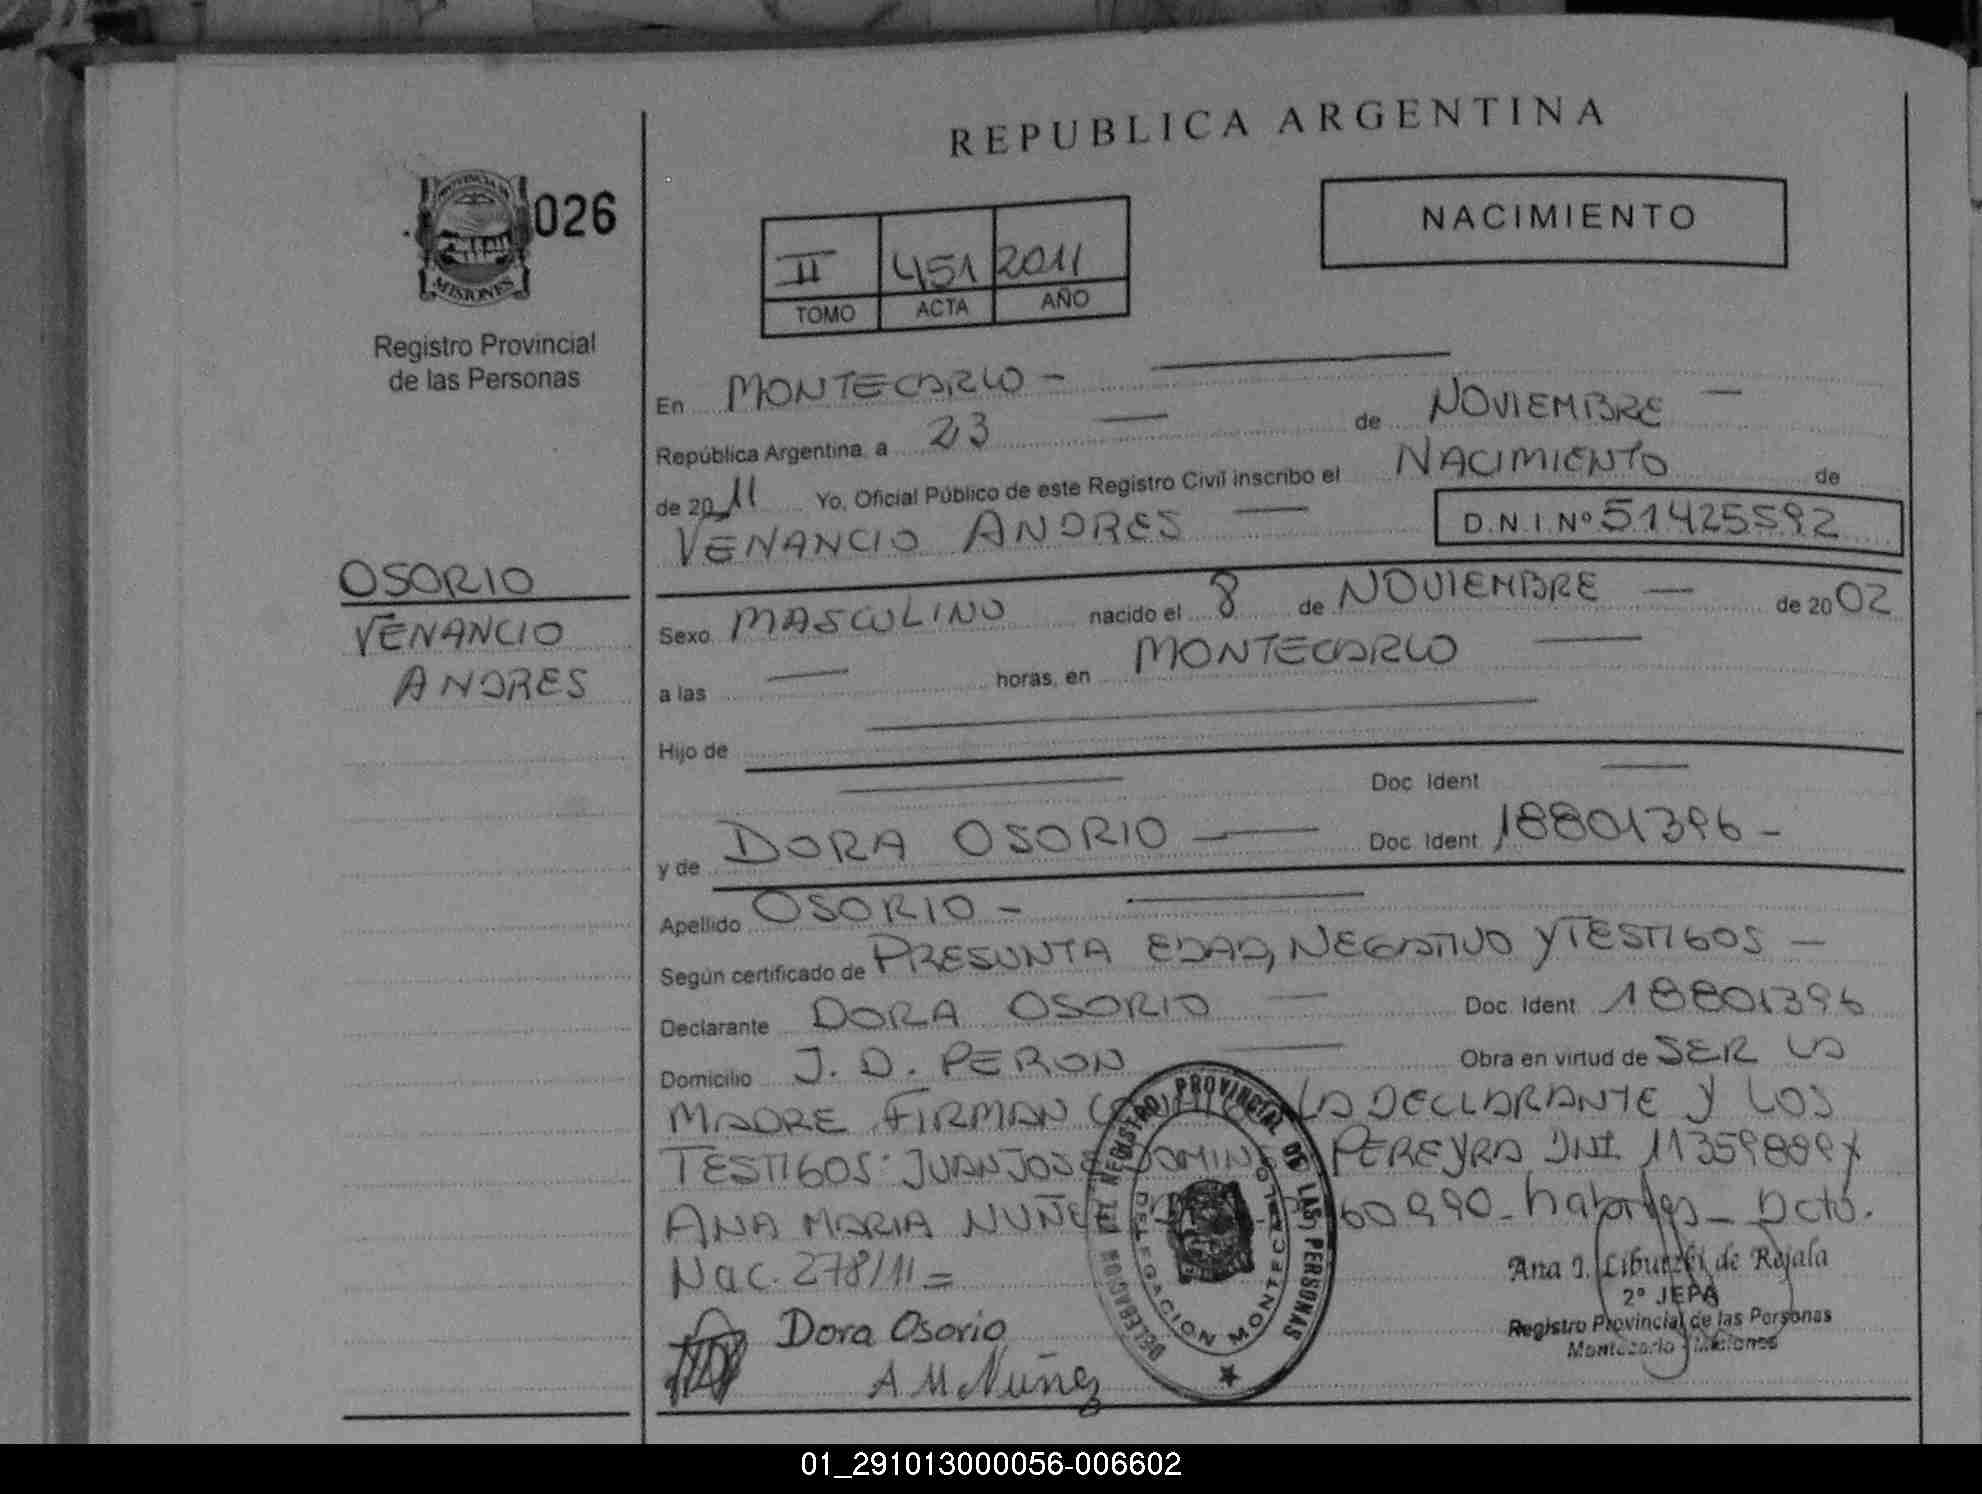 REPUBLICA ARGENTINA
PROVINCIA DE
MISIONES
026
Registro Provincial
de las Personas
NACIMIENTO
II 451 2011
TOMO ACTA AÑO
En MONTECARLO -
República Argentina, a 23 de NOVIEMBRE
de 2011 Yo, Oficial Público de este Registro Civil inscribo el NACIMIENTO de
VENANCIO ANDRES D.N.I. Nº 51425592
OSORIO
VENANCIO
ANDRES
Sexo MASCULINO nacido el 8 de NOVIEMBRE de 2002
a las horas, en MONTECARLO
Hijo de
Doc. Ident
y de DORA OSORIO Doc. Ident 18801396 -
Apellido OSORIO -
Según certificado de PRESUNTA EDAD, NEGATIVO Y TESTIGOS -
Declarante DORA OSORIO Doc. Ident 18801396
Domicilio J. D. PERON Obra en virtud de SER LA
MADRE FIRMAN LA DECLARANTE Y LOS
TESTIGOS: JUAN JOSE PEREYRA DNI 11359889 Y
ANA MARIA NUÑEZ 60990 - Dcto.
Nac. 278/11 =
Dora Osorio
A M Nuñez
DELEGACION DEL REGISTRO PROVINCIAL DE LAS PERSONAS
DELEGACION MONTECARLO
Ana I. de Rejala
2º JEFA
Registro Provincial de las Personas
Montecarlo - Misiones
01_291013000056-006602